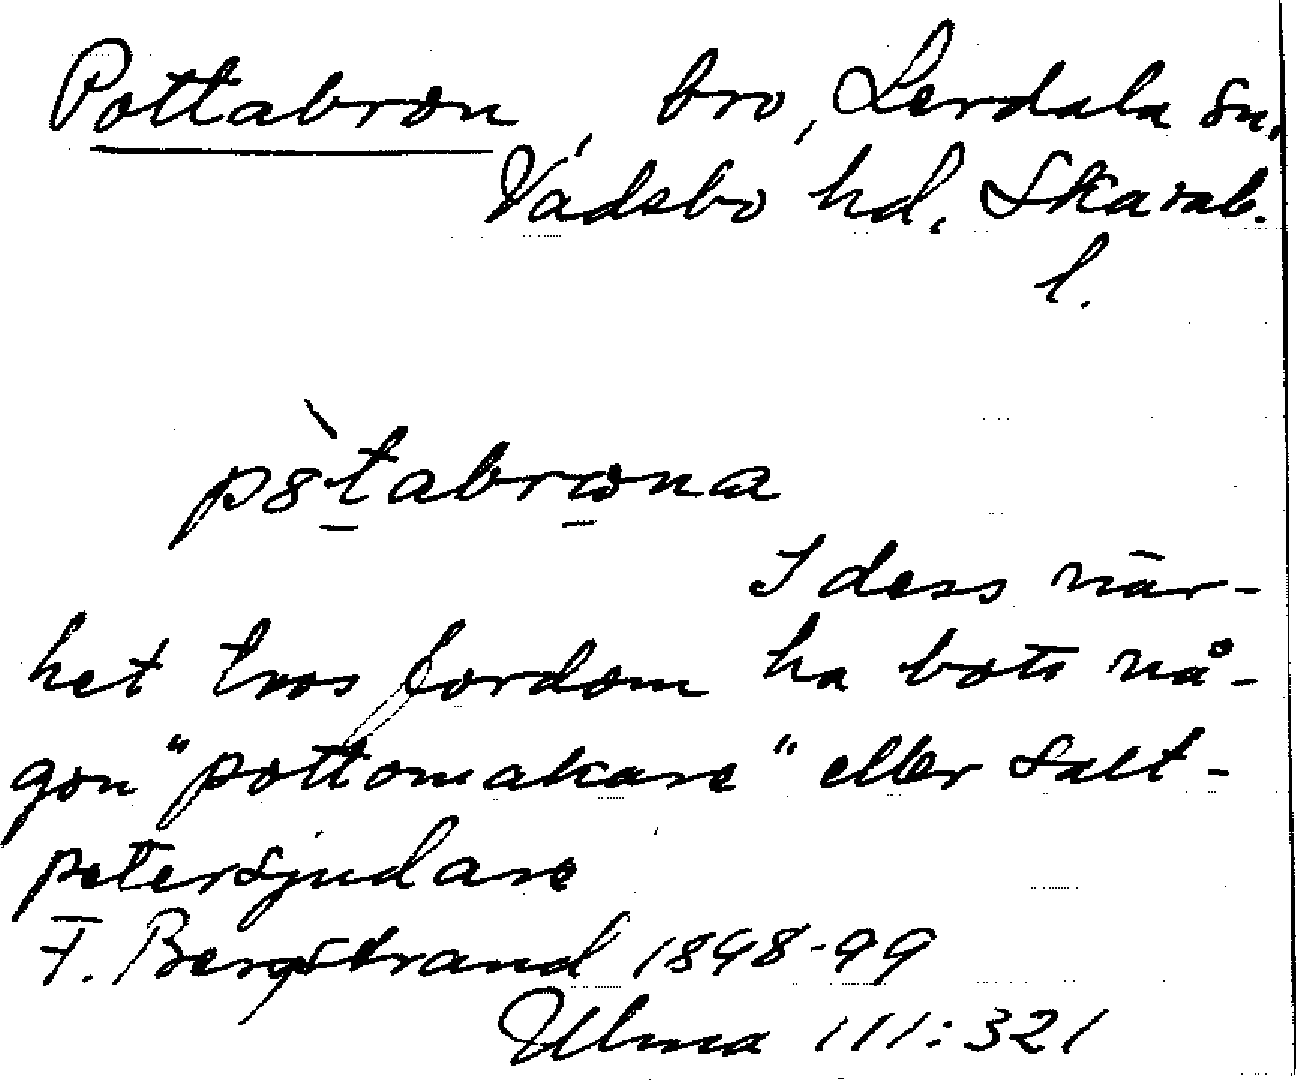 Pottabron, bro, Lerdala sn,
Vadsbo hd, Skarab.
l.
pòtabrona
I dess när-
het tros fordom ha bott nå-
gon "pottomakare" eller salt-
petersjudare
F. Bergstrand 1898-99
Ulma 111:321